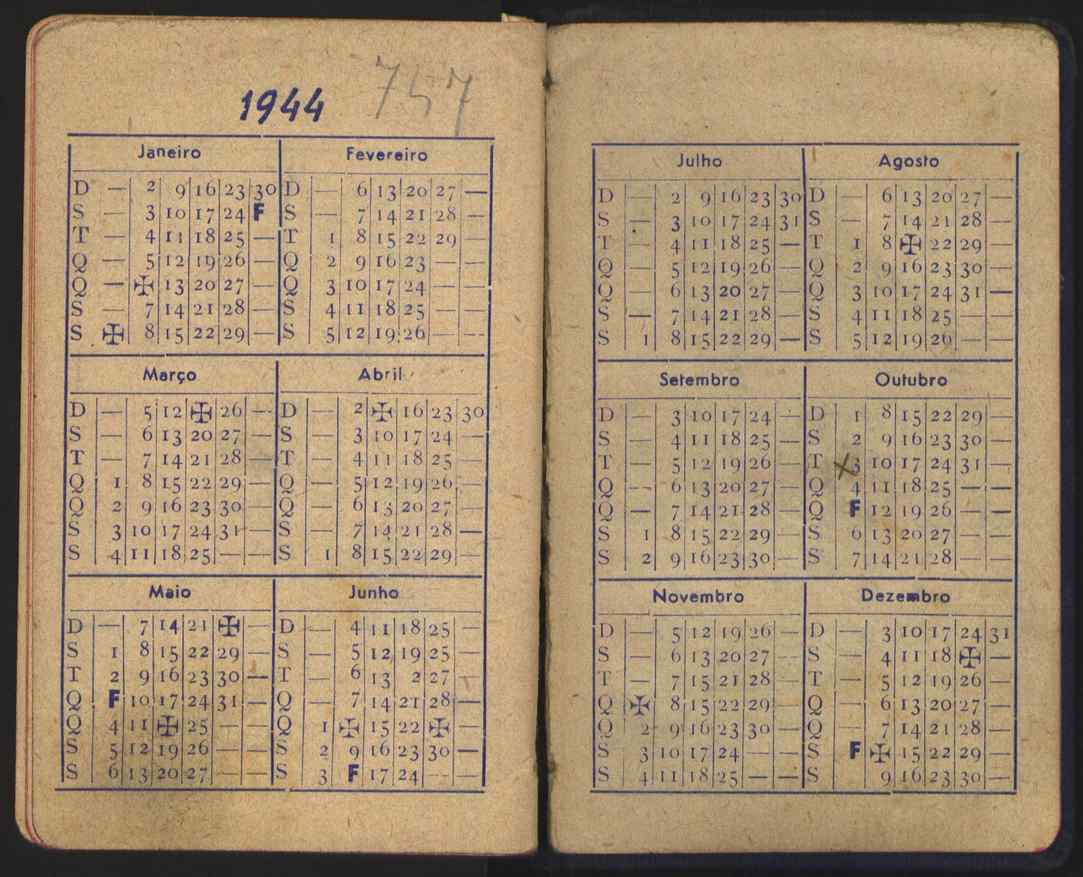 1944
Janeiro
D — 2 9 16 23 30
S — 3 10 17 24 F
T — 4 11 18 25 —
Q — 5 12 19 26 —
Q — ✠ 13 20 27 —
S — 7 14 21 28 —
S ✠ 8 15 22 29 —
Fevereiro
D — 6 13 20 27 —
S — 7 14 21 28 —
T 1 8 15 22 29 —
Q 2 9 16 23 — —
Q 3 10 17 24 — —
S 4 11 18 25 — —
S 5 12 19 26 — —
Março
D — 5 12 ✠ 26 —
S — 6 13 20 27 —
T — 7 14 21 28 —
Q 1 8 15 22 29 —
Q 2 9 16 23 30 —
S 3 10 17 24 31 —
S 4 11 18 25 — —
Abril
D — 2 ✠ 16 23 30
S — 3 10 17 24 —
T — 4 11 18 25 —
Q — 5 12 19 26 —
Q — 6 13 20 27 —
S — 7 14 21 28 —
S 1 8 15 22 29 —
Maio
D — 7 14 21 ✠ —
S 1 8 15 22 29 —
T 2 9 16 23 30 —
Q F 10 17 24 31 —
Q 4 11 ✠ 25 — —
S 5 12 19 26 — —
S 6 13 20 27 — —
Junho
D — 4 11 18 25 —
S — 5 12 19 25 —
T — 6 13 2 27 —
Q — 7 14 21 28 —
Q 1 ✠ 15 22 ✠ —
S 2 9 16 23 30 —
S 3 F 17 24 — —
Julho
D — 2 9 16 23 30
S — 3 10 17 24 31
T — 4 11 18 25 —
Q — 5 12 19 26 —
Q — 6 13 20 27 —
S — 7 14 21 28 —
S 1 8 15 22 29 —
Agosto
D — 6 13 20 27 —
S — 7 14 21 28 —
T 1 8 ✠ 22 29 —
Q 2 9 16 23 30 —
Q 3 10 17 24 31 —
S 4 11 18 25 — —
S 5 12 19 26 — —
Setembro
D — 3 10 17 24 —
S — 4 11 18 25 —
T — 5 12 19 26 —
Q — 6 13 20 27 —
Q — 7 14 21 28 —
S 1 8 15 22 29 —
S 2 9 16 23 30 —
Outubro
D 1 8 15 22 29 —
S 2 9 16 23 30 —
T 3 10 17 24 31 —
Q 4 11 18 25 — —
Q F 12 19 26 — —
S 6 13 20 27 — —
S 7 14 21 28 — —
Novembro
D — 5 12 19 26 —
S — 6 13 20 27 —
T — 7 15 21 28 —
Q ✠ 8 15 22 29 —
Q 2 9 16 23 30 —
S 3 10 17 24 — —
S 4 11 18 25 — —
Dezembro
D — 3 10 17 24 31
S — 4 11 18 ✠ —
T — 5 12 19 26 —
Q — 6 13 20 27 —
Q — 7 14 21 28 —
S F ✠ 15 22 29 —
S 9 16 23 30 —